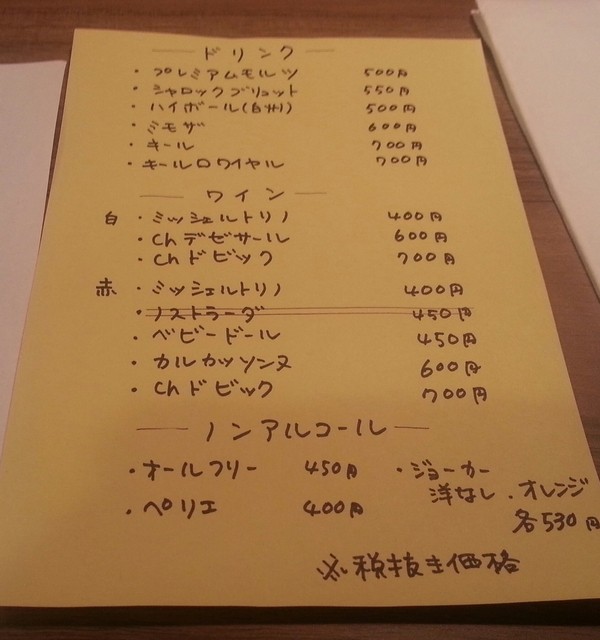 ドリンク
・プレミアムモルツ 500円
・シャロックブリュット 550円
・ハイボール(白州) 500円
・ミモザ 600円
・キール 700円
・キールロワイヤル 700円
ワイン
白・ミッシェルトリノ 400円
・Chデゼサール 600円
・Chドビック 700円
赤・ミッシェルトリノ 400円
・ノストラーダ 450円
・ベビードール 450円
・カルカッソンヌ 600円
・Chドビック 700円
ノンアルコール
・オールフリー 450円 ・ジョーカー
洋なし．オレンジ
・ペリエ 400円 各530円
※税抜き価格